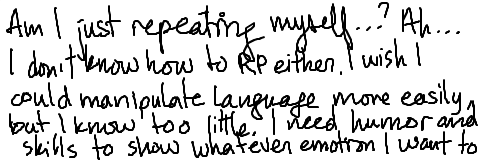 Am I just repeating myself...? Ah...
I don't know how to RP either. I wish I
could manipulate language more easily,
but I know too little. I need humor and
skills to show whatever emotion I want to